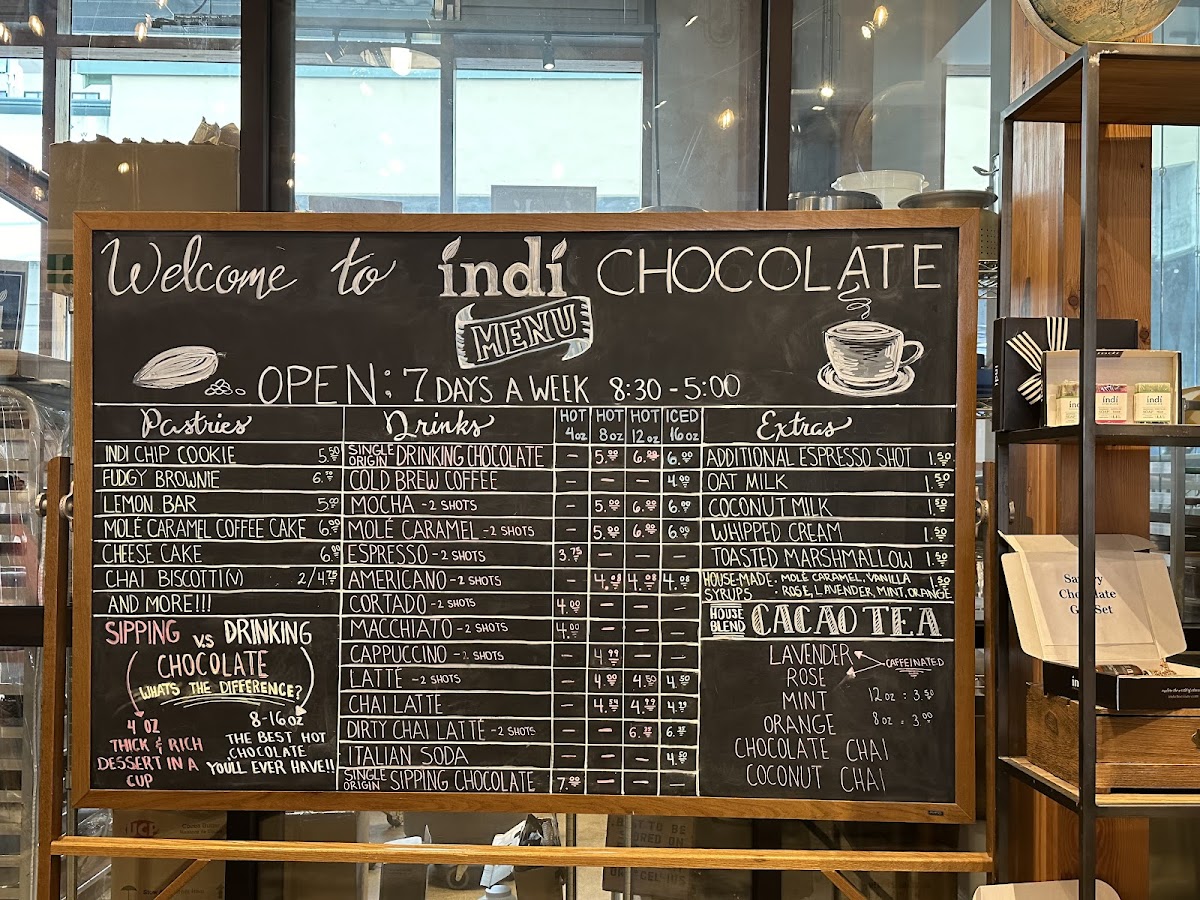 Welcome to indi CHOCOLATE
MENU
OPEN: 7 DAYS A WEEK 8:30 - 5:00
Pastries
INDI CHIP COOKIE 5.50
FUDGY BROWNIE
LEMON BAR 5.00
MOLÉ CARAMEL COFFEE CAKE 6.00
CHEESE CAKE 6.00
CHAI BISCOTTI(V) 2/4.75
AND MORE!!!
SIPPING V.S DRINKING
CHOCOLATE
WHATS THE DIFFERENCE?
4 OZ
THICK & RICH
DESSERT IN A
CUP
8-16 OZ
THE BEST HOT
CHOCOLATE
YOU'LL EVER HAVE!!
Drinks HOT 4oz HOT 8oz HOT 12oz ICED 16oz
SINGLE ORIGIN DRINKING CHOCOLATE - 5.00 6.00 6.00
COLD BREW COFFEE - - - 4.00
MOCHA - 2 SHOTS - 5.00 6.00 6.00
MOLÉ CARAMEL - 2 SHOTS - 5.00 6.00 6.00
ESPRESSO - 2 SHOTS 3.75 - - -
AMERICANO - 2 SHOTS - 4.08 4.08 4.08
CORTADO - 2 SHOTS 4.00 - - -
MACCHIATO - 2 SHOTS 4.00 - - -
CAPPUCCINO - 2 SHOTS - 4.99 - -
LATTÉ - 2 SHOTS - 4.00 4.50 4.50
CHAI LATTE - 4.54 4.99 4.79
DIRTY CHAI LATTÉ - 2 SHOTS - - 6.35 6.35
ITALIAN SODA - - - 4.50
SINGLE ORIGIN SIPPING CHOCOLATE 7.00 - - -
Extras
ADDITIONAL ESPRESSO SHOT 1.50
OAT MILK 1.50
COCONUT MILK 1.50
WHIPPED CREAM 1.50
TOASTED MARSHMALLOW 1.50
HOUSE-MADE SYRUPS : MOLÉ CARAMEL, VANILLA 1.50
: ROSE, LAVENDER, MINT, ORANGE
HOUSE BLEND CACAO TEA
LAVENDER
ROSE
CAFFEINATED
MINT
ORANGE
12 oz : 3.50
8 oz : 3.00
CHOCOLATE CHAI
COCONUT CHAI
indi
indi
indi
Chocolate
Set